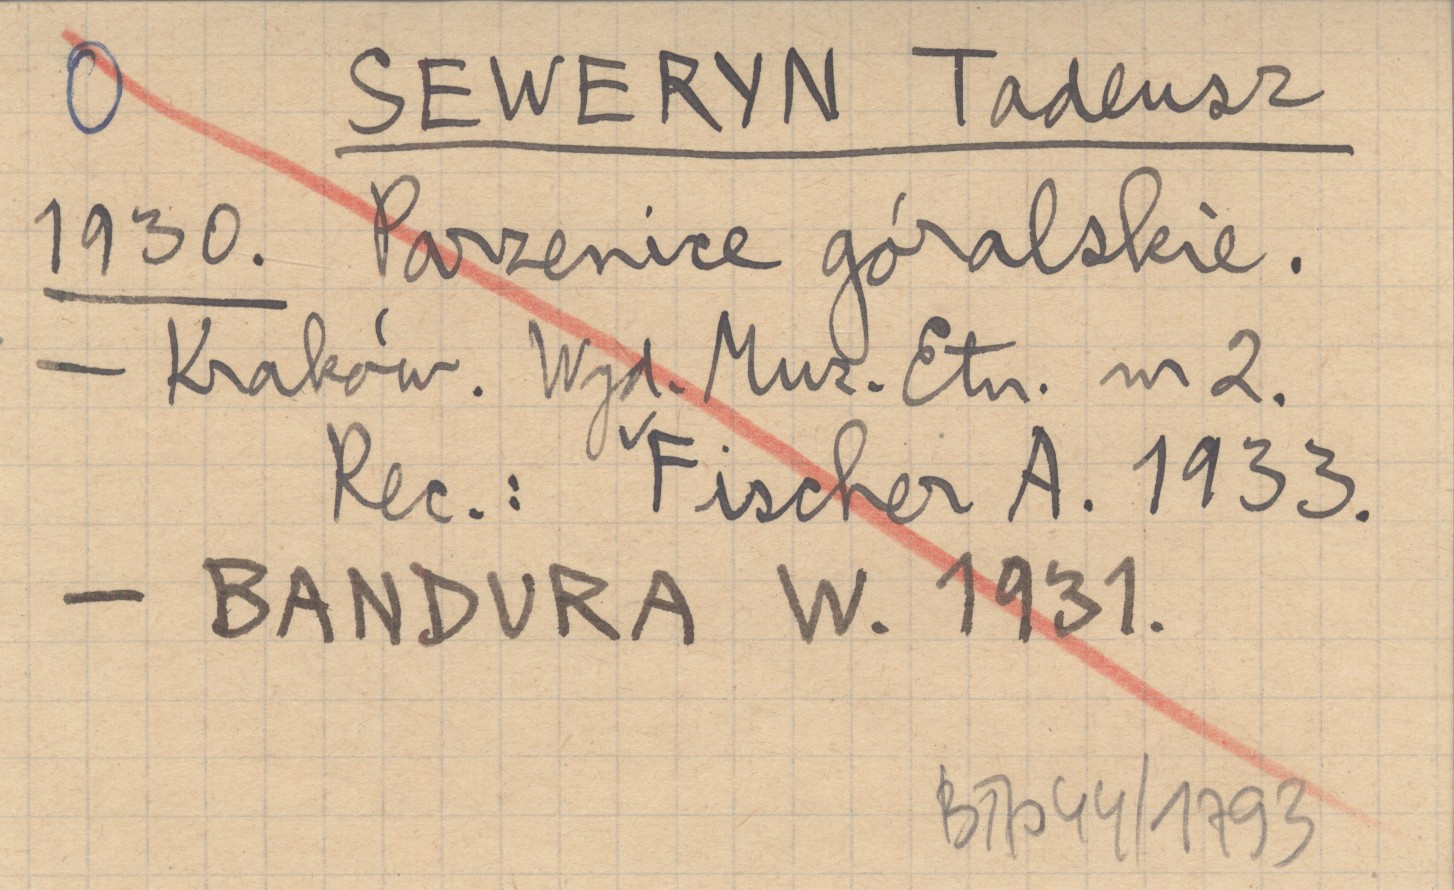 O SEWERYN Tadeusz
1930. Parzenice góralskie.
— Kraków. Wyd. Muz. Etn. nr 2.
Rec.: Fischer A. 1933.
— BANDURA W. 1931.
44/1793